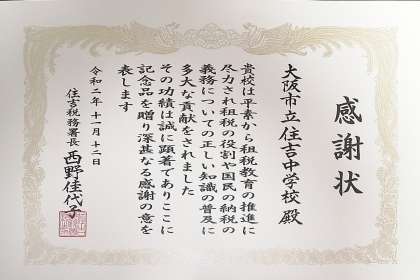 感謝状
大阪市立住吉中学校 殿
貴校は平素から租税教育の推進に
尽力され租税の役割や国民の納税の
義務についての正しい知識の普及に
多大な貢献をされました
その功績は誠に顕著でありここに
記念品を贈り深甚なる感謝の意を
表します
令和二年十一月十二日
住吉税務署長 西野佳代子